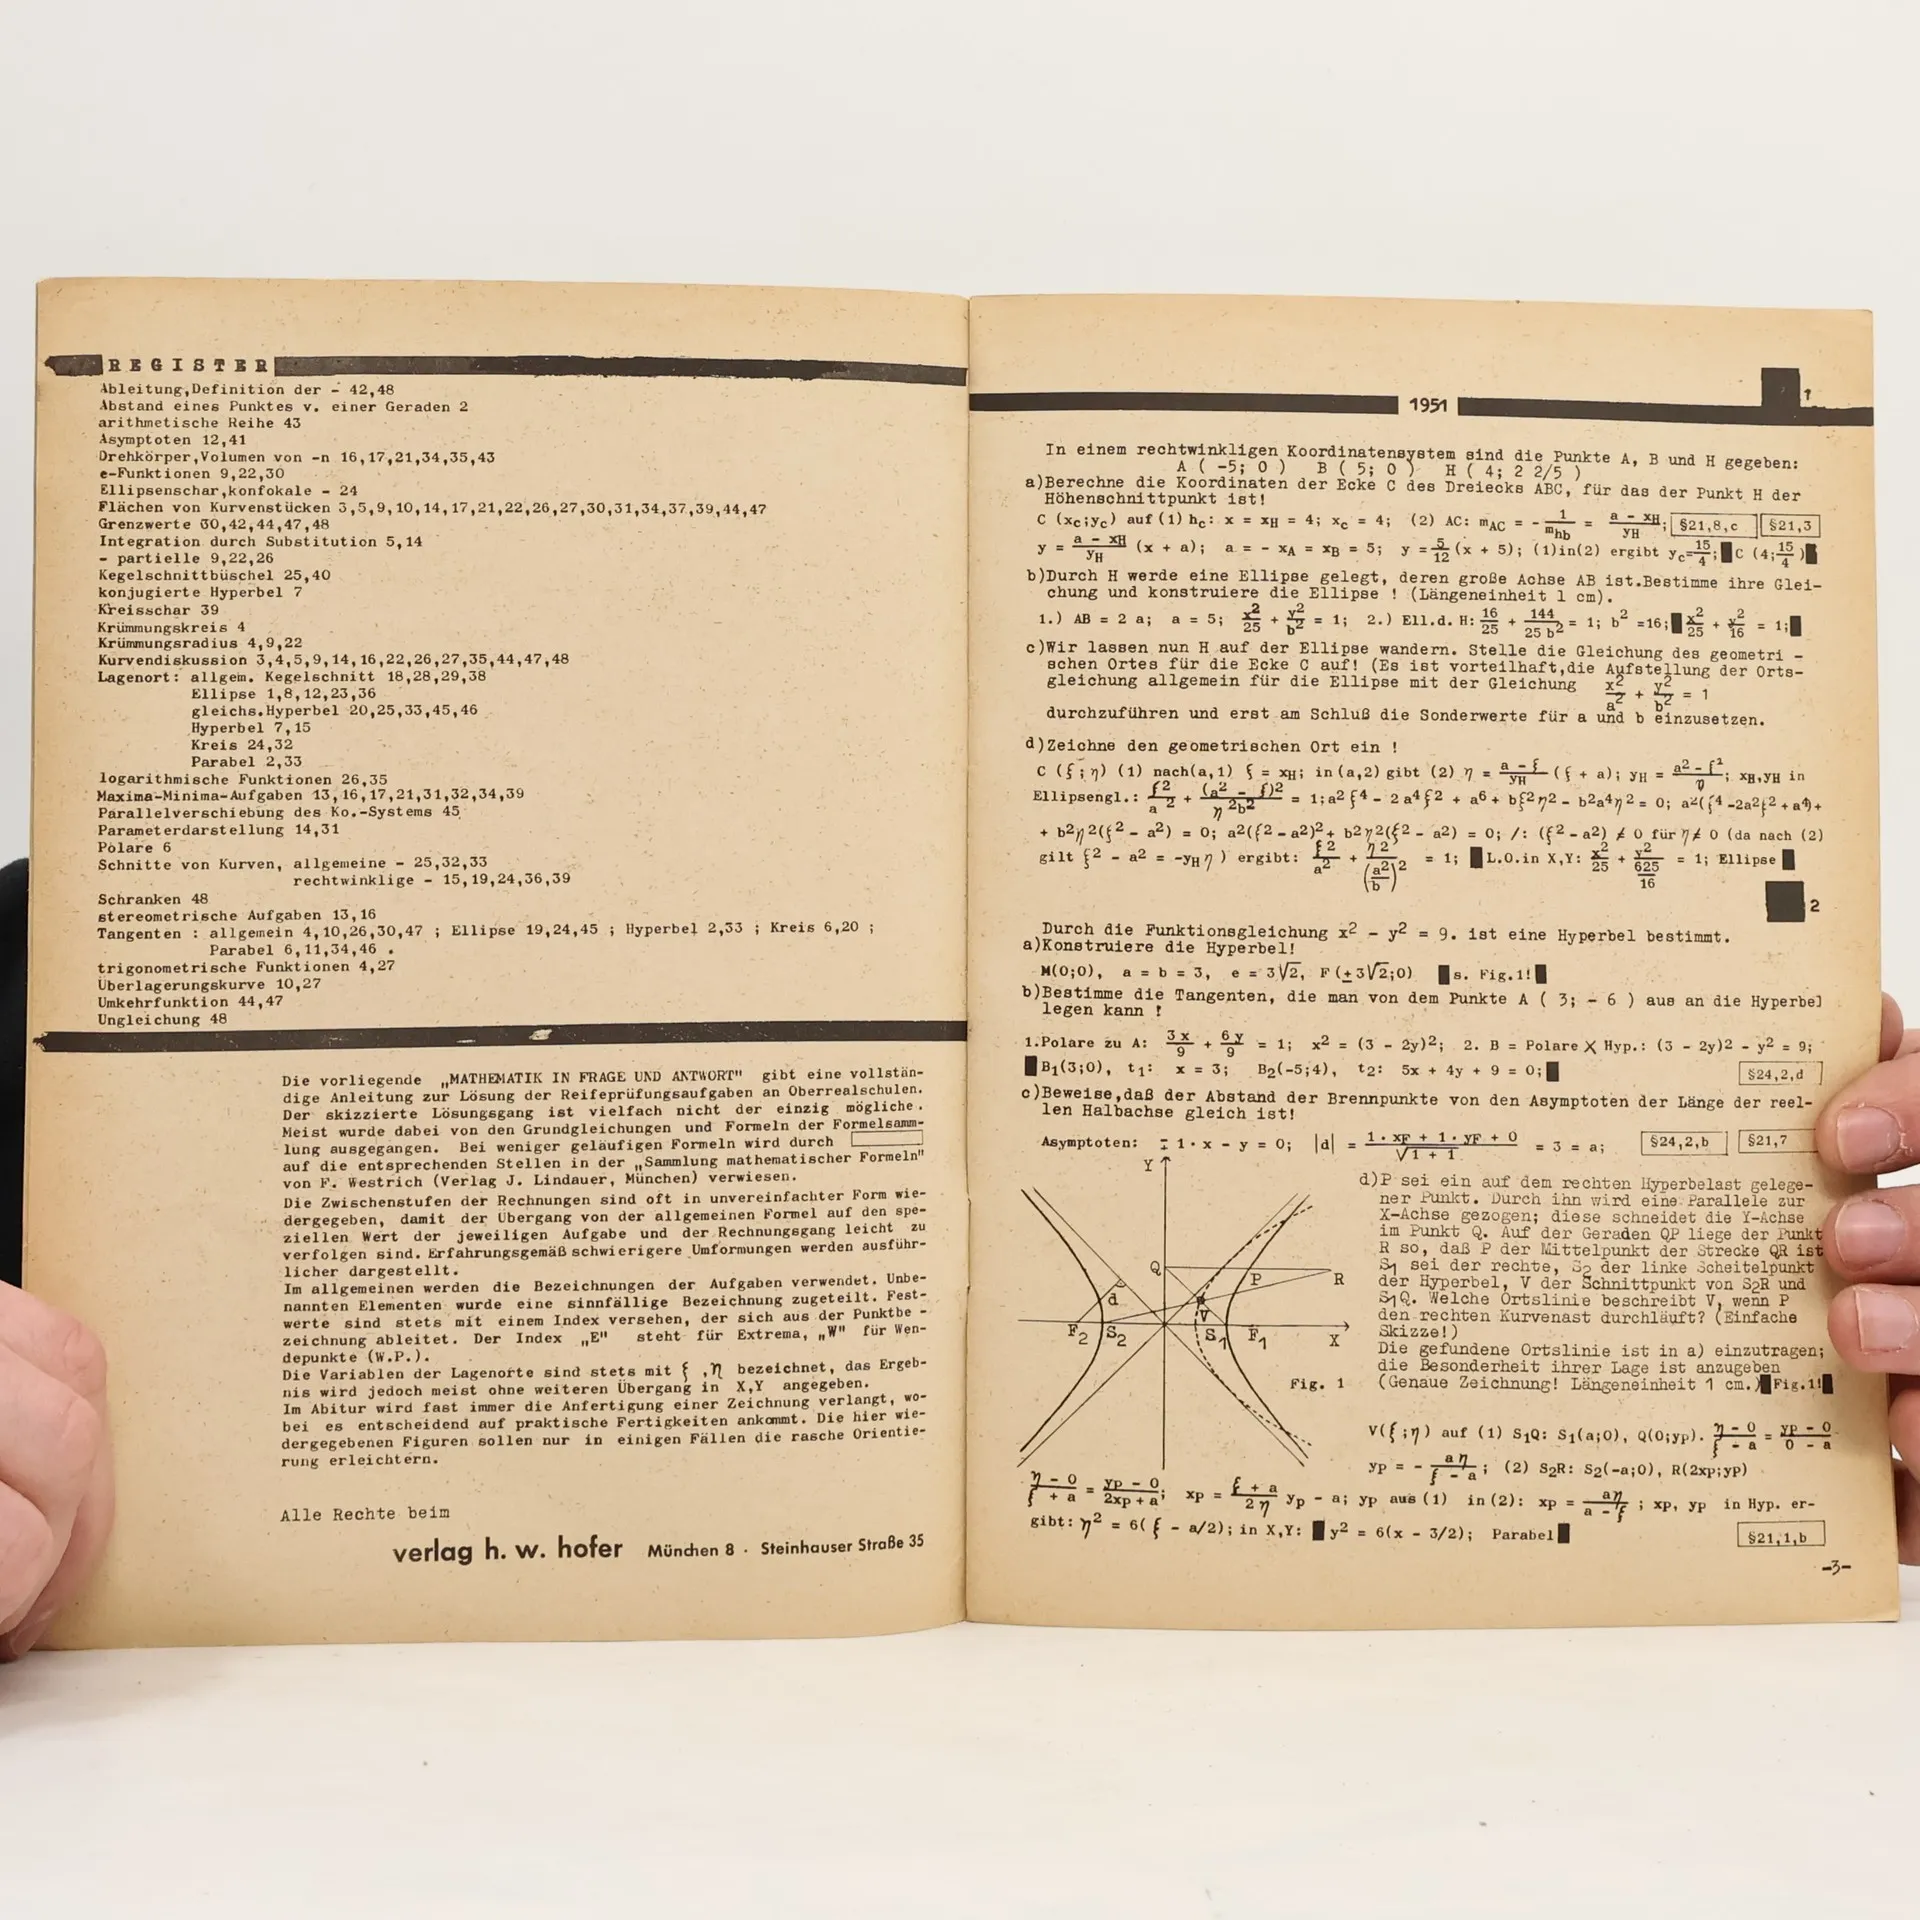 REGISTER
Ableitung,Definition der - 42,48
Abstand eines Punktes v. einer Geraden 2
arithmetische Reihe 43
Asymptoten 12,41
Drehkörper,Volumen von -n 16,17,21,34,35,43
e-Funktionen 9,22,30
Ellipsenschar,konfokale - 24
Flächen von Kurvenstücken 3,5,9,10,14,17,21,22,26,27,30,31,34,37,39,44,47
Grenzwerte 30,42,44,47,48
Integration durch Substitution 5,14
- partielle 9,22,26
Kegelschnittbüschel 25,40
konjugierte Hyperbel 7
Kreisschar 39
Krümmungskreis 4
Krümmungsradius 4,9,22
Kurvendiskussion 3,4,5,9,14,16,22,26,27,35,44,47,48
Lagenort: allgem. Kegelschnitt 18,28,29,38
Ellipse 1,8,12,23,36
gleichs.Hyperbel 20,25,33,45,46
Hyperbel 7,15
Kreis 24,32
Parabel 2,33
logarithmische Funktionen 26,35
Maxima-Minima-Aufgaben 13,16,17,21,31,32,34,39
Parallelverschiebung des Ko.-Systems 45
Parameterdarstellung 14,31
Polare 6
Schnitte von Kurven, allgemeine - 25,32,33
rechtwinklige - 15,19,24,36,39
Schranken 48
stereometrische Aufgaben 13,16
Tangenten : allgemein 4,10,26,30,47 ; Ellipse 19,24,45 ; Hyperbel 2,33 ; Kreis 6,20 ;
Parabel 6,11,34,46 .
trigonometrische Funktionen 4,27
Überlagerungskurve 10,27
Umkehrfunktion 44,47
Ungleichung 48
Die vorliegende „MATHEMATIK IN FRAGE UND ANTWORT" gibt eine vollstän-
dige Anleitung zur Lösung der Reifeprüfungsaufgaben an Oberrealschulen.
Der skizzierte Lösungsgang ist vielfach nicht der einzig mögliche.
Meist wurde dabei von den Grundgleichungen und Formeln der Formelsamm-
lung ausgegangen. Bei weniger geläufigen Formeln wird durch
auf die entsprechenden Stellen in der „Sammlung mathematischer Formeln"
von F. Westrich (Verlag J. Lindauer, München) verwiesen.
Die Zwischenstufen der Rechnungen sind oft in unvereinfachter Form wie-
dergegeben, damit der Übergang von der allgemeinen Formel auf den spe-
ziellen Wert der jeweiligen Aufgabe und der Rechnungsgang leicht zu
verfolgen sind. Erfahrungsgemäß schwierigere Umformungen werden ausführ-
licher dargestellt.
Im allgemeinen werden die Bezeichnungen der Aufgaben verwendet. Unbe-
nannten Elementen wurde eine sinnfällige Bezeichnung zugeteilt. Fest-
werte sind stets mit einem Index versehen, der sich aus der Punktbe -
zeichnung ableitet. Der Index „E" steht für Extrema, „W" für Wen-
depunkte (W.P.).
Die Variablen der Lagenorte sind stets mit ξ ,η bezeichnet, das Ergeb-
nis wird jedoch meist ohne weiteren Übergang in X,Y angegeben.
Im Abitur wird fast immer die Anfertigung einer Zeichnung verlangt, wo-
bei es entscheidend auf praktische Fertigkeiten ankommt. Die hier wie-
dergegebenen Figuren sollen nur in einigen Fällen die rasche Orientie-
rung erleichtern.
Alle Rechte beim
verlag h. w. hofer München 8 · Steinhauser Straße 35
1951
1
In einem rechtwinkligen Koordinatensystem sind die Punkte A, B und H gegeben:
A ( -5; 0 ) B ( 5; 0 ) H ( 4; 2 2/5 )
a)Berechne die Koordinaten der Ecke C des Dreiecks ABC, für das der Punkt H der
Höhenschnittpunkt ist!
C (xc;yc) auf (1) hc: x = xH = 4; xc = 4; (2) AC: mAC = - 1/mhb = (a - xH)/yH; §21,8,c §21,3
y = (a - xH)/yH (x + a); a = - xA = xB = 5; y = 5/12 (x + 5); (1)in(2) ergibt yc=15/4; C (4;15/4)
b)Durch H werde eine Ellipse gelegt, deren große Achse AB ist.Bestimme ihre Glei-
chung und konstruiere die Ellipse ! (Längeneinheit 1 cm).
1.) AB = 2 a; a = 5; x²/25 + y²/b² = 1; 2.) Ell.d. H: 16/25 + 144/25 b² = 1; b² =16; x²/25 + y²/16 = 1;
c)Wir lassen nun H auf der Ellipse wandern. Stelle die Gleichung des geometri -
schen Ortes für die Ecke C auf! (Es ist vorteilhaft,die Aufstellung der Orts-
gleichung allgemein für die Ellipse mit der Gleichung x²/a² + y²/b² = 1
durchzuführen und erst am Schluß die Sonderwerte für a und b einzusetzen.
d)Zeichne den geometrischen Ort ein !
C (ξ;η) (1) nach(a,1) ξ = xH; in(a,2) gibt (2) η = (a - ξ)/yH (ξ + a); yH = (a² - ξ²)/η; xH,yH in
Ellipsengl.: ξ²/a² + (a² - ξ)²/η²b² = 1;a²ξ⁴ - 2a⁴ξ² + a⁶ + bξ²η² - b²a⁴η² = 0; a²(ξ⁴ -2a²ξ² + a⁴)+
+ b²η²(ξ² - a²) = 0; a²(ξ² - a²)² + b²η²(ξ² - a²) = 0; /: (ξ² - a²) ≠ 0 für η≠ 0 (da nach (2)
gilt ξ² - a² = -yHη ) ergibt: ξ²/a² + η²/(a²/b)² = 1; L.O.in X,Y: x²/25 + y²/(625/16) = 1; Ellipse
2
Durch die Funktionsgleichung x² - y² = 9. ist eine Hyperbel bestimmt.
a)Konstruiere die Hyperbel!
M(0;0), a = b = 3, e = 3√2, F(±3√2;0) s. Fig.1!
b)Bestimme die Tangenten, die man von dem Punkte A ( 3; - 6 ) aus an die Hyperbel
legen kann !
1.Polare zu A: 3x/9 + 6y/9 = 1; x² = (3 - 2y)²; 2. B = Polare X Hyp.: (3 - 2y)2 - y² = 9;
B₁(3;0), t₁: x = 3; B₂(-5;4), t₂: 5x + 4y + 9 = 0; §24,2,d
c)Beweise,daß der Abstand der Brennpunkte von den Asymptoten der Länge der reel-
len Halbachse gleich ist!
Asymptoten: ∓ 1·x - y = 0; |d| = (1·xF + 1·yF + 0)/√(1 + 1) = 3 = a; §24,2,b §21,7
Y
Q
P
R
d
V
F₂
S₂
S₁
F₁
X
Fig. 1
d)P sei ein auf dem rechten Hyperbelast gelege-
ner Punkt. Durch ihn wird eine Parallele zur
X-Achse gezogen; diese schneidet die Y-Achse
im Punkt Q. Auf der Geraden QP liege der Punkt
R so, daß P der Mittelpunkt der Strecke QR ist
S₁ sei der rechte, S₂ der linke Scheitelpunkt
der Hyperbel, V der Schnittpunkt von S₂R und
S₁Q. Welche Ortslinie beschreibt V, wenn P
den rechten Kurvenast durchläuft? (Einfache
Skizze!)
Die gefundene Ortslinie ist in a) einzutragen;
die Besonderheit ihrer Lage ist anzugeben
(Genaue Zeichnung! Längeneinheit 1 cm.) Fig.1!
V(ξ;η) auf (1) S₁Q: S₁(a;0), Q(0;yp). (η - 0)/(ξ - a) = (yp - 0)/(0 - a)
yp = - aη/(ξ - a); (2) S₂R: S₂(-a;0), R(2xp;yp)
(η - 0)/(ξ + a) = (yp - 0)/(2xp + a); xp = (ξ + a)/2η yp - a; yp aus (1) in(2): xp = aη/(a - ξ) ; xp, yp in Hyp. er-
gibt: η² = 6(ξ - a/2); in X,Y: y² = 6(x - 3/2); Parabel §21,1,b
-3-